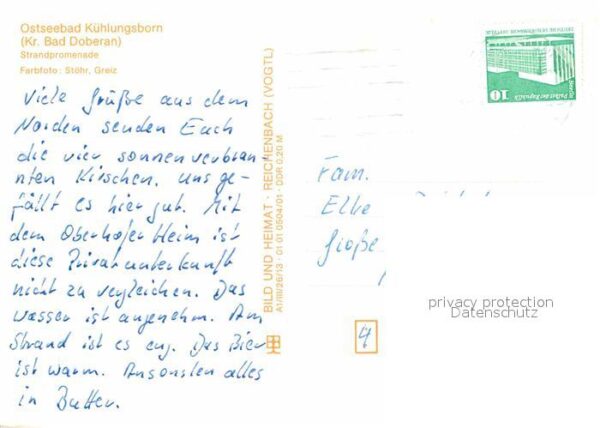 Ostseebad Kühlungsborn
(Kr. Bad Doberan)
Strandpromenade
Farbfoto: Stöhr, Greiz
Viele Grüße aus dem
Norden senden Euch
die vier sonnenverbran-
nten Kirschen. Uns ge-
fällt es hier gut. Mit
dem Oberhofer Heim ist
diese Privatunterkunft
nicht zu vergleichen. Das
Wasser ist angenehm. Am
Strand ist es eng. Das Bier
ist warm. Ansonsten alles
in Butter.
BILD UND HEIMAT · REICHENBACH (VOGTL)
A1/III/26/13 01 01 0504/01 · DDR 0,20 M
Palast der Republik
Berlin
10
Fam.
Elke
Große
4
privacy protection
Datenschutz